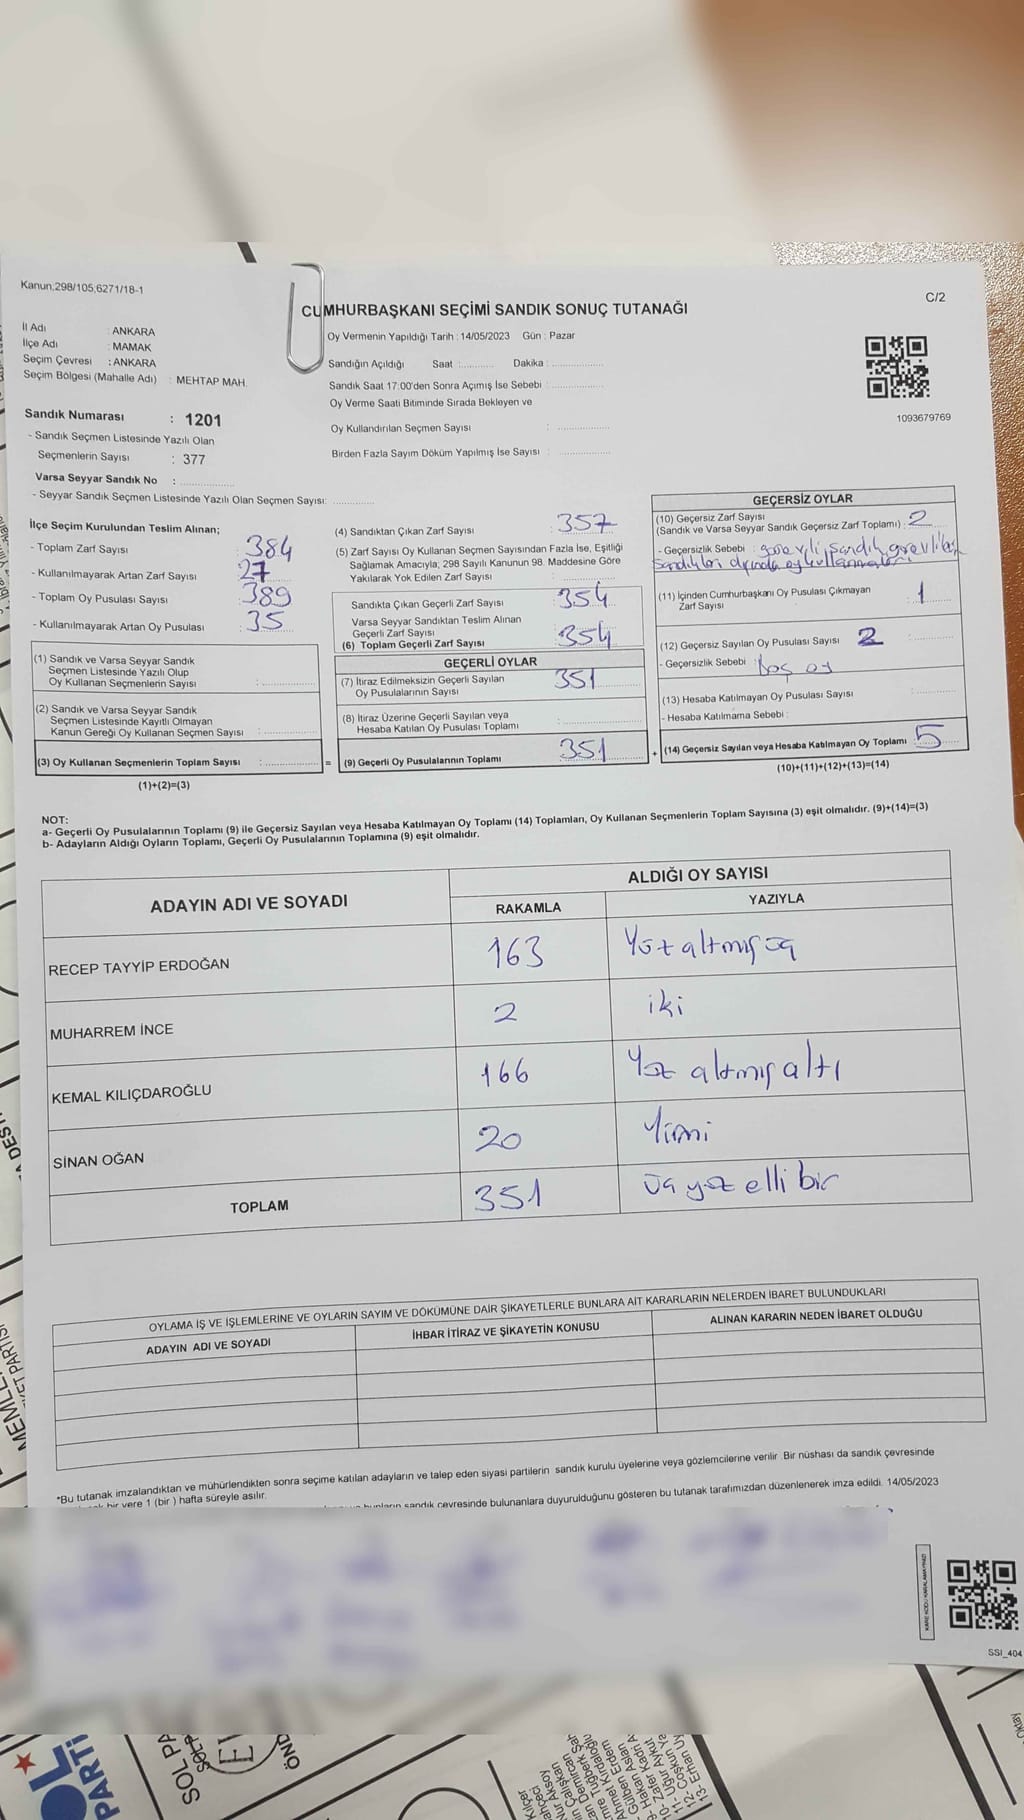 Kanun,298/105,6271/18-1
C/2
CUMHURBAŞKANI SEÇİMİ SANDIK SONUÇ TUTANAĞI
İl Adı : ANKARA
İlçe Adı : MAMAK
Seçim Çevresi : ANKARA
Seçim Bölgesi (Mahalle Adı) : MEHTAP MAH.
Oy Vermenin Yapıldığı Tarih : 14/05/2023 Gün : Pazar
Sandığın Açıldığı Saat :........... Dakika :................
Sandık Saat 17:00'den Sonra Açımış İse Sebebi :................
Oy Verme Saati Bitiminde Sırada Bekleyen ve
Oy Kullandırılan Seçmen Sayısı : ................
Birden Fazla Sayım Döküm Yapılmış İse Sayısı : ................
1093679769
Sandık Numarası : 1201
- Sandık Seçmen Listesinde Yazılı Olan
Seçmenlerin Sayısı : 377
Varsa Seyyar Sandık No : ................
- Seyyar Sandık Seçmen Listesinde Yazılı Olan Seçmen Sayısı: ............
İlçe Seçim Kurulundan Teslim Alınan;
- Toplam Zarf Sayısı 384
- Kullanılmayarak Artan Zarf Sayısı 27
- Toplam Oy Pusulası Sayısı 389
- Kullanılmayarak Artan Oy Pusulası 35
(1) Sandık ve Varsa Seyyar Sandık
Seçmen Listesinde Yazılı Olup
Oy Kullanan Seçmenlerin Sayısı : ................
(2) Sandık ve Varsa Seyyar Sandık
Seçmen Listesinde Kayıtlı Olmayan
Kanun Gereği Oy Kullanan Seçmen Sayısı : ................
(3) Oy Kullanan Seçmenlerin Toplam Sayısı : ................ =
(1)+(2)=(3)
(4) Sandıktan Çıkan Zarf Sayısı : 357
(5) Zarf Sayısı Oy Kullanan Seçmen Sayısından Fazla İse, Eşitliği
Sağlamak Amacıyla, 298 Sayılı Kanunun 98. Maddesine Göre
Yakılarak Yok Edilen Zarf Sayısı : ................
Sandıkta Çıkan Geçerli Zarf Sayısı : 354
Varsa Seyyar Sandıktan Teslim Alınan
Geçerli Zarf Sayısı
(6) Toplam Geçerli Zarf Sayısı 354
GEÇERLİ OYLAR
(7) İtiraz Edilmeksizin Geçerli Sayılan
Oy Pusulalarının Sayısı 351
(8) İtiraz Üzerine Geçerli Sayılan veya
Hesaba Katılan Oy Pusulası Toplamı : ................
(9) Geçerli Oy Pusulalarının Toplamı 351 +
GEÇERSİZ OYLAR
(10) Geçersiz Zarf Sayısı
(Sandık ve Varsa Seyyar Sandık Geçersiz Zarf Toplamı) : 2
- Geçersizlik Sebebi : sandık
(11) İçinden Cumhurbaşkanı Oy Pusulası Çıkmayan
Zarf Sayısı : 1
(12) Geçersiz Sayılan Oy Pusulası Sayısı 2
- Geçersizlik Sebebi boş oy
(13) Hesaba Katılmayan Oy Pusulası Sayısı : ................
- Hesaba Katılmama Sebebi :
(14) Geçersiz Sayılan veya Hesaba Katılmayan Oy Toplamı 5
(10)+(11)+(12)+(13)=(14)
NOT:
a- Geçerli Oy Pusulalarının Toplamı (9) ile Geçersiz Sayılan veya Hesaba Katılmayan Oy Toplamı (14) Toplamları, Oy Kullanan Seçmenlerin Toplam Sayısına (3) eşit olmalıdır. (9)+(14)=(3)
b- Adayların Aldığı Oyların Toplamı, Geçerli Oy Pusulalarının Toplamına (9) eşit olmalıdır.
ADAYIN ADI VE SOYADI ALDIĞI OY SAYISI
RAKAMLA YAZIYLA
RECEP TAYYİP ERDOĞAN 163 Yüz altmış üç
MUHARREM İNCE 2 iki
KEMAL KILIÇDAROĞLU 166 Yüz altmış altı
SİNAN OĞAN 20 Yirmi
TOPLAM 351 üç yüz elli bir
OYLAMA İŞ VE İŞLEMLERİNE VE OYLARIN SAYIM VE DÖKÜMÜNE DAİR ŞİKAYETLERLE BUNLARA AİT KARARLARIN NELERDEN İBARET BULUNDUKLARI
ADAYIN ADI VE SOYADI İHBAR İTİRAZ VE ŞİKAYETİN KONUSU ALINAN KARARIN NEDEN İBARET OLDUĞU
*Bu tutanak imzalandıktan ve mühürlendikten sonra seçime katılan adayların ve talep eden siyasi partilerin sandık kurulu üyelerine veya gözlemcilerine verilir. Bir nüshası da sandık çevresinde
bir yere 1 (bir ) hafta süreyle asılır.
bunların sandık çevresinde bulunanlara duyurulduğunu gösteren bu tutanak tarafımızdan düzenlenerek imza edildi. 14/05/2023
KARE KODU KARALAMAYINIZ!
SSI_404
SOL PA
PARTİ